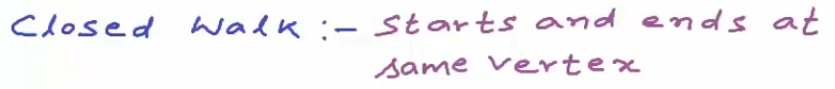 Closed Walk :- Starts and ends at
same vertex